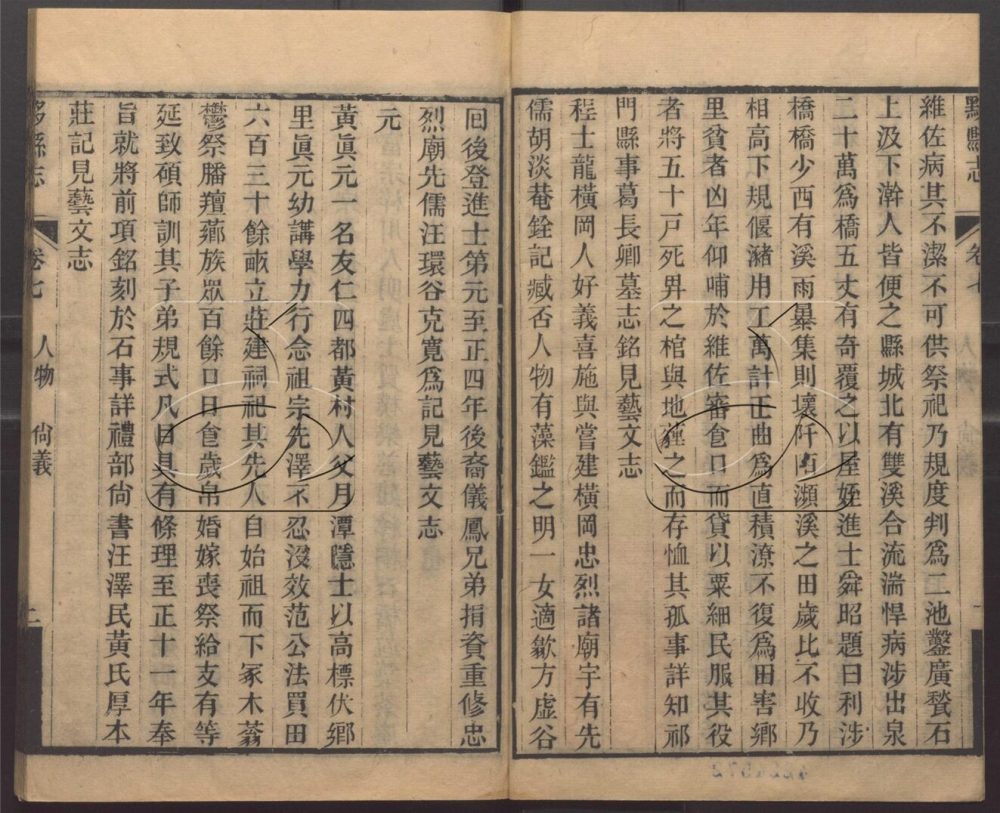 黟縣志 卷七
維佐病其不潔不可供祭祀乃規度判爲二池鑿廣甃石
上汲下澣人皆便之縣城北有雙溪合流湍悍病涉出泉
二十萬爲橋五丈有奇覆之以屋姪進士舜昭題曰利涉
橋橋少西有溪雨暴集則壞阡陌瀕溪之田歲比不收乃
相高下規偃瀦用工萬計正曲爲直積潦不復爲田害鄉
里貧者凶年仰哺於維佐審食口而貸以粟細民服其役
者將五十戸死畀之棺與地薶之而存恤其孤事詳知祁
門縣事葛長卿墓志銘見藝文志
程士龍橫岡人好義喜施與嘗建橫岡忠烈諸廟宇有先
儒胡淡菴銓記臧否人物有藻鑑之明一女適歙方虛谷
囘後登進士第元至正四年後裔儀鳳兄弟捐資重修忠
烈廟先儒汪環谷克寬爲記見藝文志
元
黃眞元一名友仁四都黃村人父月潭隱士以高標伏鄉
里眞元幼講學力行念祖宗先澤不忍沒效范公法買田
六百三十餘畝立莊建祠祀其先人自始祖而下冢木蓊
鬱祭膰羶薌族眾百餘口日食歲帛婚嫁喪祭給支有等
延致碩師訓其子弟規式凡目具有條理至正十一年奉
旨就將前項銘刻於石事詳禮部尙書汪澤民黃氏厚本
莊記見藝文志
縣志 卷七 人物 尙義